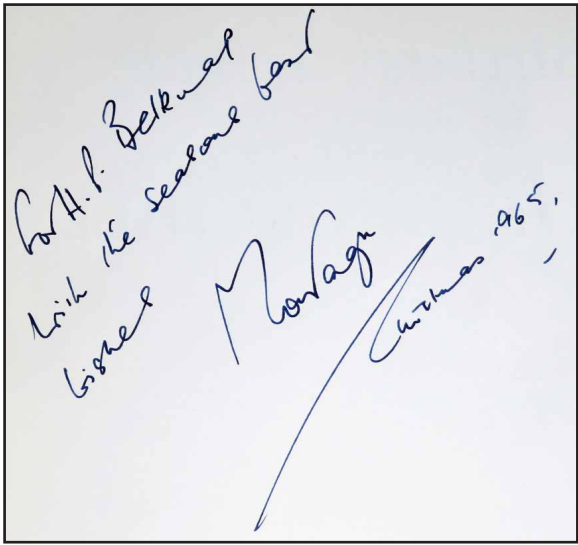 For H.P. Belknap
With the seasons best
wishes
Montagu
Christmas 1965.